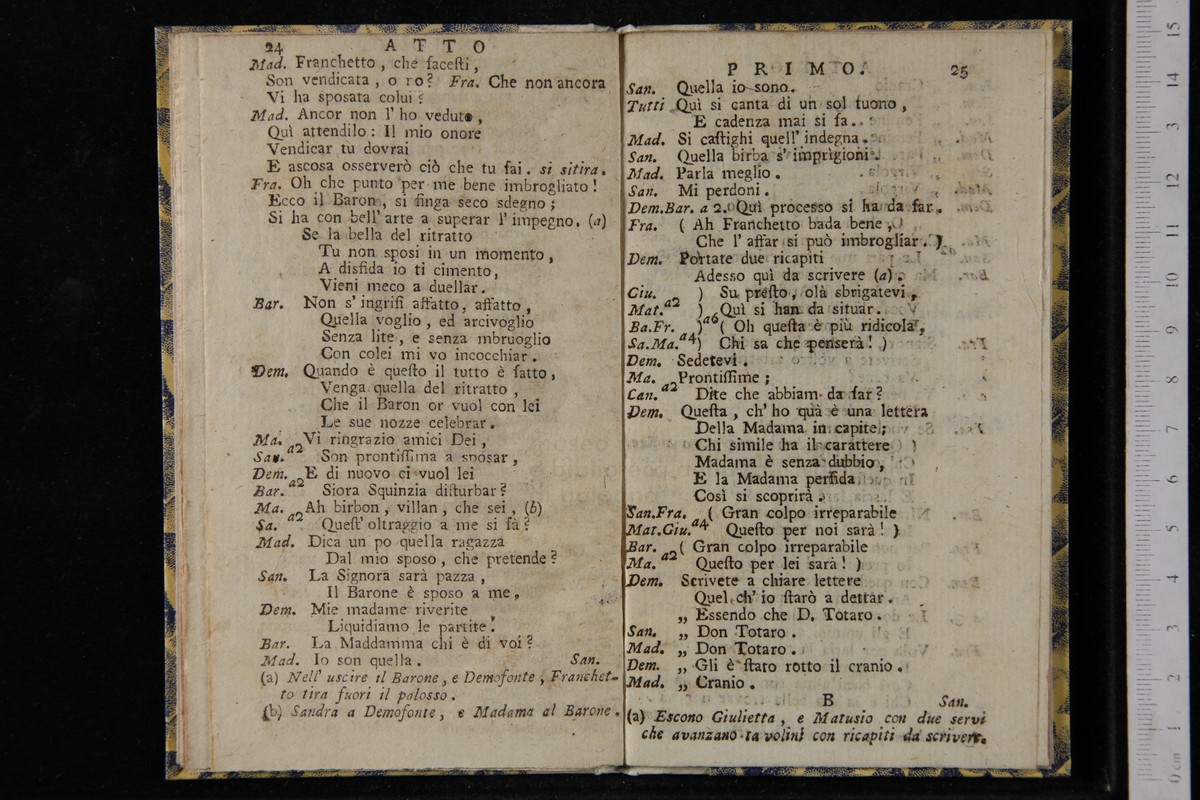 24 ATTO
Mad. Franchetto, che facesti,
Son vendicata, o no? Fra. Che non ancora
Vi ha sposata colui?
Mad. Ancor non l'ho veduto,
Quì attendilo: Il mio onore
Vendicar tu dovrai
E ascosa osserverò ciò che tu fai. si sitira.
Fra. Oh che punto per me bene imbrogliato!
Ecco il Baron, si finga seco sdegno;
Si ha con bell'arte a superar l'impegno. (a)
Se la bella del ritratto
Tu non sposi in un momento,
A disfida io ti cimento,
Vieni meco a duellar.
Bar. Non s'ingrifi affatto, affatto,
Quella voglio, ed arcivoglio
Senza lite, e senza mbruoglio
Con colei mi vo incocchiar.
Dem. Quando è questo il tutto è fatto,
Venga quella del ritratto,
Che il Baron or vuol con lei
Le sue nozze celebrar.
Ma. a2 Vi ringrazio amici Dei,
San. Son prontissima a sposar,
Dem. a2 E di nuovo ci vuol lei
Bar. Siora Squinzia disturbar?
Ma. a2 Ah birbon, villan, che sei, (b)
Sa. Quest'oltraggio a me si fà?
Mad. Dica un po quella ragazza
Dal mio sposo, che pretende?
San. La Signora sarà pazza,
Il Barone è sposo a me.
Dem. Mie madame riverite
Liquidiamo le partite.
Bar. La Maddamma chi è di voi?
Mad. Io son quella. San.
(a) Nell' uscire il Barone, e Demofonte, Franchet-
to tira fuori il palosso.
(b) Sandra a Demofonte, e Madama al Barone.
PRIMO. 25
San. Quella io sono.
Tutti Quì si canta di un sol tuono,
E cadenza mai si fa.
Mad. Si castighi quell'indegna.
San. Quella birba s'imprigioni.
Mad. Parla meglio.
San. Mi perdoni.
Dem.Bar. a 2. Quì processo si ha da far.
Fra. (Ah Franchetto bada bene,
Che l'affar si può imbrogliar.)
Dem. Portate due ricapiti
Adesso quì da scrivere (a).
Giu. a2 ) Su presto, olà sbrigatevi,
Mat. ) a6 Quì si han da situar.
Ba.Fr. )( Oh questa è più ridicola,
Sa.Ma. a4) Chi sa che penserà!)
Dem. Sedetevi.
Ma. a2 Prontissime;
Can. Dite che abbiam da far?
Dem. Questa, ch'ho quà è una lettera
Della Madama in capite;
Chi simile ha il carattere
Madama è senza dubbio,
E la Madama perfida
Così si scoprirà.
San.Fra. (Gran colpo irreparabile
Mat.Giu. a4 Questo per noi sarà!)
Bar. a2 (Gran colpo irreparabile
Ma. Questo per lei sarà!)
Dem. Scrivete a chiare lettere
Quel ch'io starò a dettar.
„ Essendo che D. Totaro.
San. „ Don Totaro.
Mad. „ Don Totaro.
Dem. „ Gli è stato rotto il cranio.
Mad. „ Cranio.
B San.
(a) Escono Giulietta, e Matusio con due servi
che avanzano tavolini con ricapiti da scrivere.